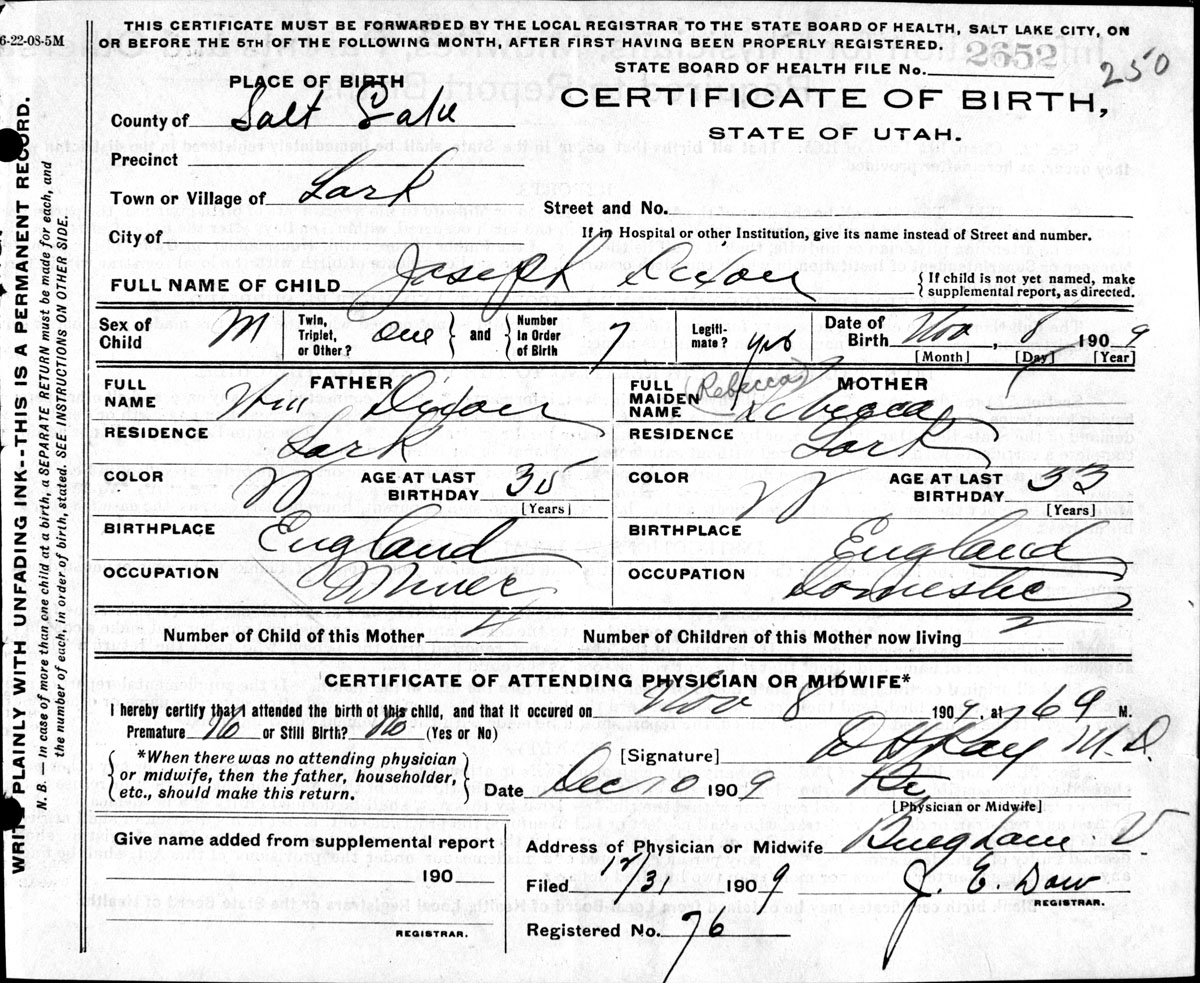 6-22-08-5M
THIS CERTIFICATE MUST BE FORWARDED BY THE LOCAL REGISTRAR TO THE STATE BOARD OF HEALTH, SALT LAKE CITY, ON
OR BEFORE THE 5TH OF THE FOLLOWING MONTH, AFTER FIRST HAVING BEEN PROPERLY REGISTERED.
STATE BOARD OF HEALTH FILE No. 2652
250
PLACE OF BIRTH
CERTIFICATE OF BIRTH,
STATE OF UTAH.
County of Salt Lake
Precinct
Town or Village of Lark
Street and No.
City of
If in Hospital or other Institution, give its name instead of Street and number.
FULL NAME OF CHILD Joseph Dixon
If child is not yet named, make
supplemental report, as directed.
Sex of Child M
Twin, Triplet, or Other? one and Number in Order of Birth 7
Legitimate? yes
Date of Birth Nov, 8 1909
[Month] [Day] [Year]
FATHER
FULL NAME Wm Dixon
RESIDENCE Lark
COLOR W AGE AT LAST BIRTHDAY 35
[Years]
BIRTHPLACE England
OCCUPATION Miner
MOTHER
FULL MAIDEN NAME (Rebecca) Rebecca
RESIDENCE Lark
COLOR W AGE AT LAST BIRTHDAY 33
[Years]
BIRTHPLACE England
OCCUPATION Domestic
Number of Child of this Mother 4 Number of Children of this Mother now living 2
CERTIFICATE OF ATTENDING PHYSICIAN OR MIDWIFE*
I hereby certify that I attended the birth of this child, and that it occurred on Nov 8 1909, at M.
Premature No or Still Birth? No (Yes or No)
*When there was no attending physician
or midwife, then the father, householder,
etc., should make this return.
[Signature] Ray M.D.
Date Dec 10 1909
[Physician or Midwife]
Give name added from supplemental report
190
REGISTRAR.
Address of Physician or Midwife Bingham U
Filed 1909 J. E. Dow
REGISTRAR.
Registered No. 76
WRITE PLAINLY WITH UNFADING INK--THIS IS A PERMANENT RECORD.
N. B. In case of more than one child at a birth, a SEPARATE RETURN must be made for each, and
the number of each, in order of birth, stated. SEE INSTRUCTIONS ON OTHER SIDE.